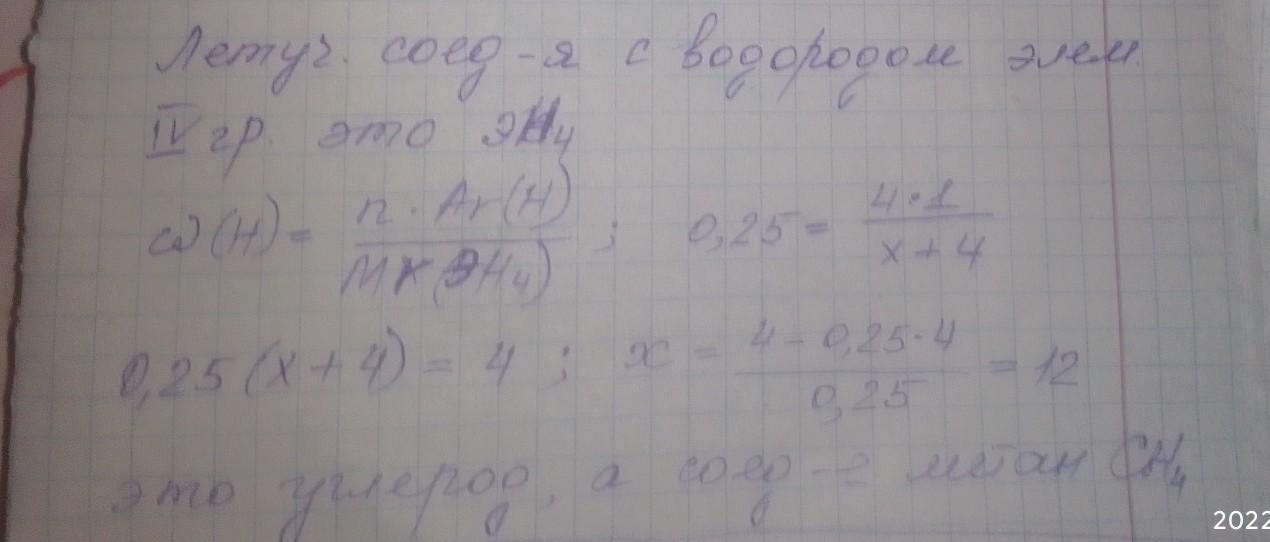 Летуч. соед-я с водородом элем.
IV гр. это ЭH₄
ω(H) = n · Ar(H) / Mr(ЭH₄) ; 0,25 = 4·1 / x+4
0,25(x+4) = 4 ; x = 4-0,25·4 / 0,25 = 12
это углерод, а соед-е метан CH₄
2022